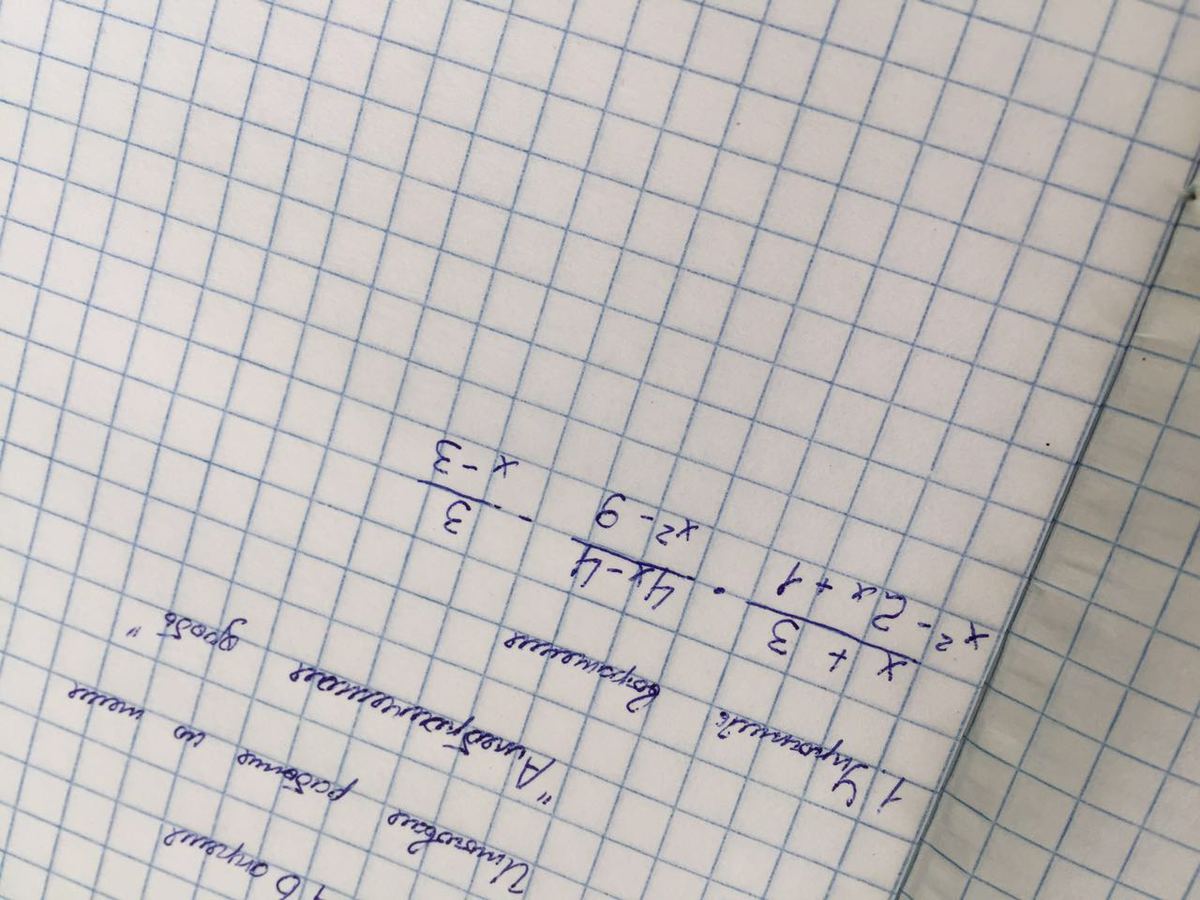 10 апреля
Итоговая работа по теме
"Алгебраическая дробь"
1. Упростить выражение
\frac{x+3}{x²-2x+1} · \frac{4x-4}{x²-9} - \frac{3}{x-3}